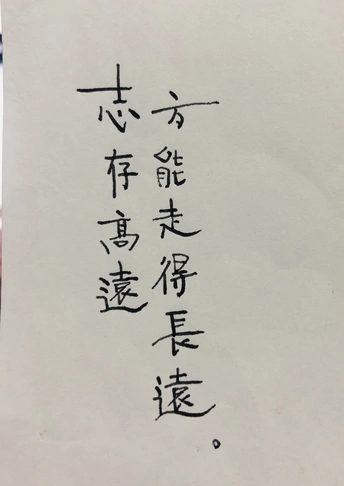 志存高遠
方能走得長遠。